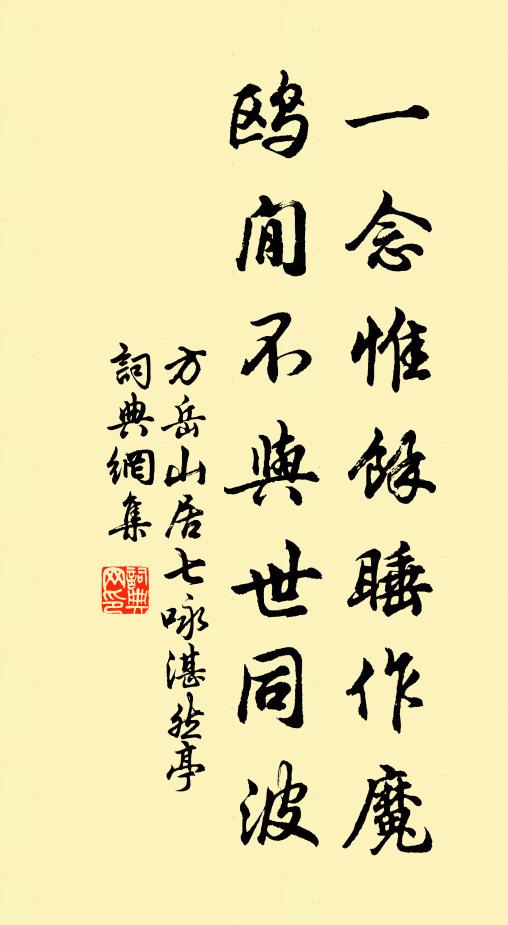 一念惟餘睡作魔
鸥閒不與世同波
方岳山居七咏湛然亭
詞典網集
詞典网印